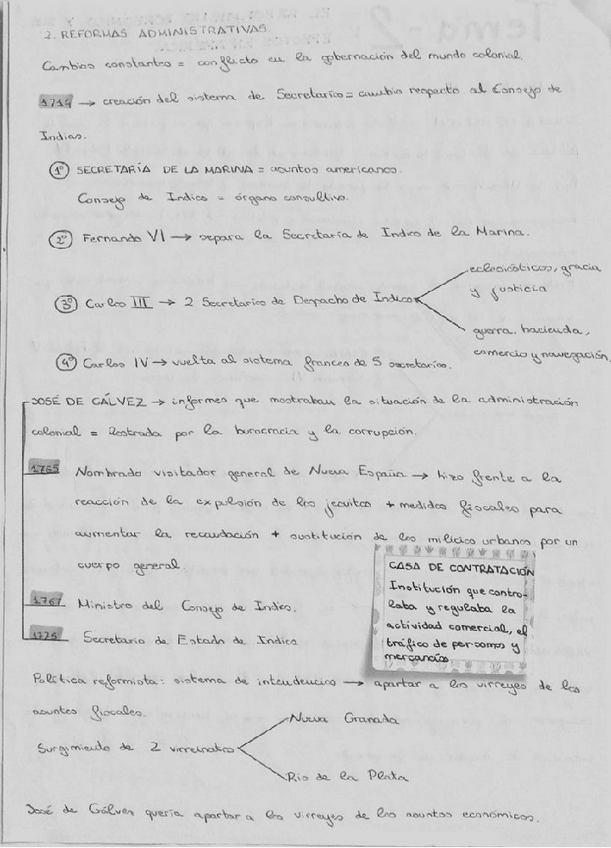 2. REFORMAS ADMINISTRATIVAS.
Cambios constantes = conflicto en la gobernación del mundo colonial.
1714 → creación del sistema de Secretarios = cambio respecto al Consejo de
Indias.
1º SECRETARÍA DE LA MARINA = asuntos americanos.
Consejo de Indias = órgano consultivo.
2º Fernando VI → separa la Secretaría de Indias de la Marina.
3º Carlos III → 2 Secretarios de Despacho de Indias
eclesiásticos, gracia
y justicia
guerra, hacienda,
comercio y navegación.
4º Carlos IV → vuelta al sistema frances de 5 secretarios.
JOSÉ DE GÁLVEZ → informes que mostraban la situación de la administración
colonial = lastrada por la burocracia y la corrupción.
1765 Nombrado visitador general de Nueva España → hizo frente a la
reacción de la expulsión de los jesuitas + medidas fiscales para
aumentar la recaudación + sustitución de las milicias urbanas por un
cuerpo general
CASA DE CONTRATACIÓN
Institución que contro-
laba y regulaba la
actividad comercial, el
tráfico de personas y
mercancías
1767 Ministro del Consejo de Indias.
Secretario de Estado de Indias
Política reformista: sistema de intendencias → apartar a los virreyes de los
asuntos fiscales.
Surgimiento de 2 virreinatos
Nueva Granada
Río de la Plata
José de Gálvez quería apartar a los virreyes de los asuntos económicos.